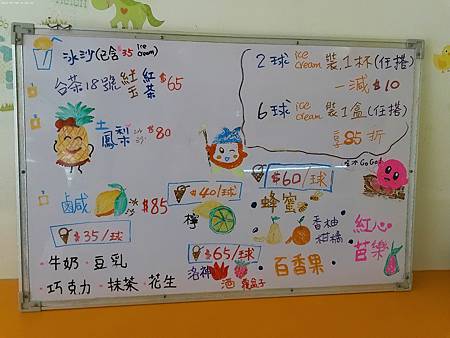 冰沙(已含$35 ice cream)
台茶18號 紅玉 紅茶 $65
土鳳梨 冰沙 $80
鹹 $85
2球 ice cream 裝1杯(任搭)
一減 $10
6球 ice cream 裝1盒(任搭)
享85折
$35/球
牛奶 · 豆乳
巧克力 · 抹茶 · 花生
$40/球
檸
$65/球
洛神
酒
$60/球
蜂蜜
香柚
柑橘
百香果
紅心
芭樂